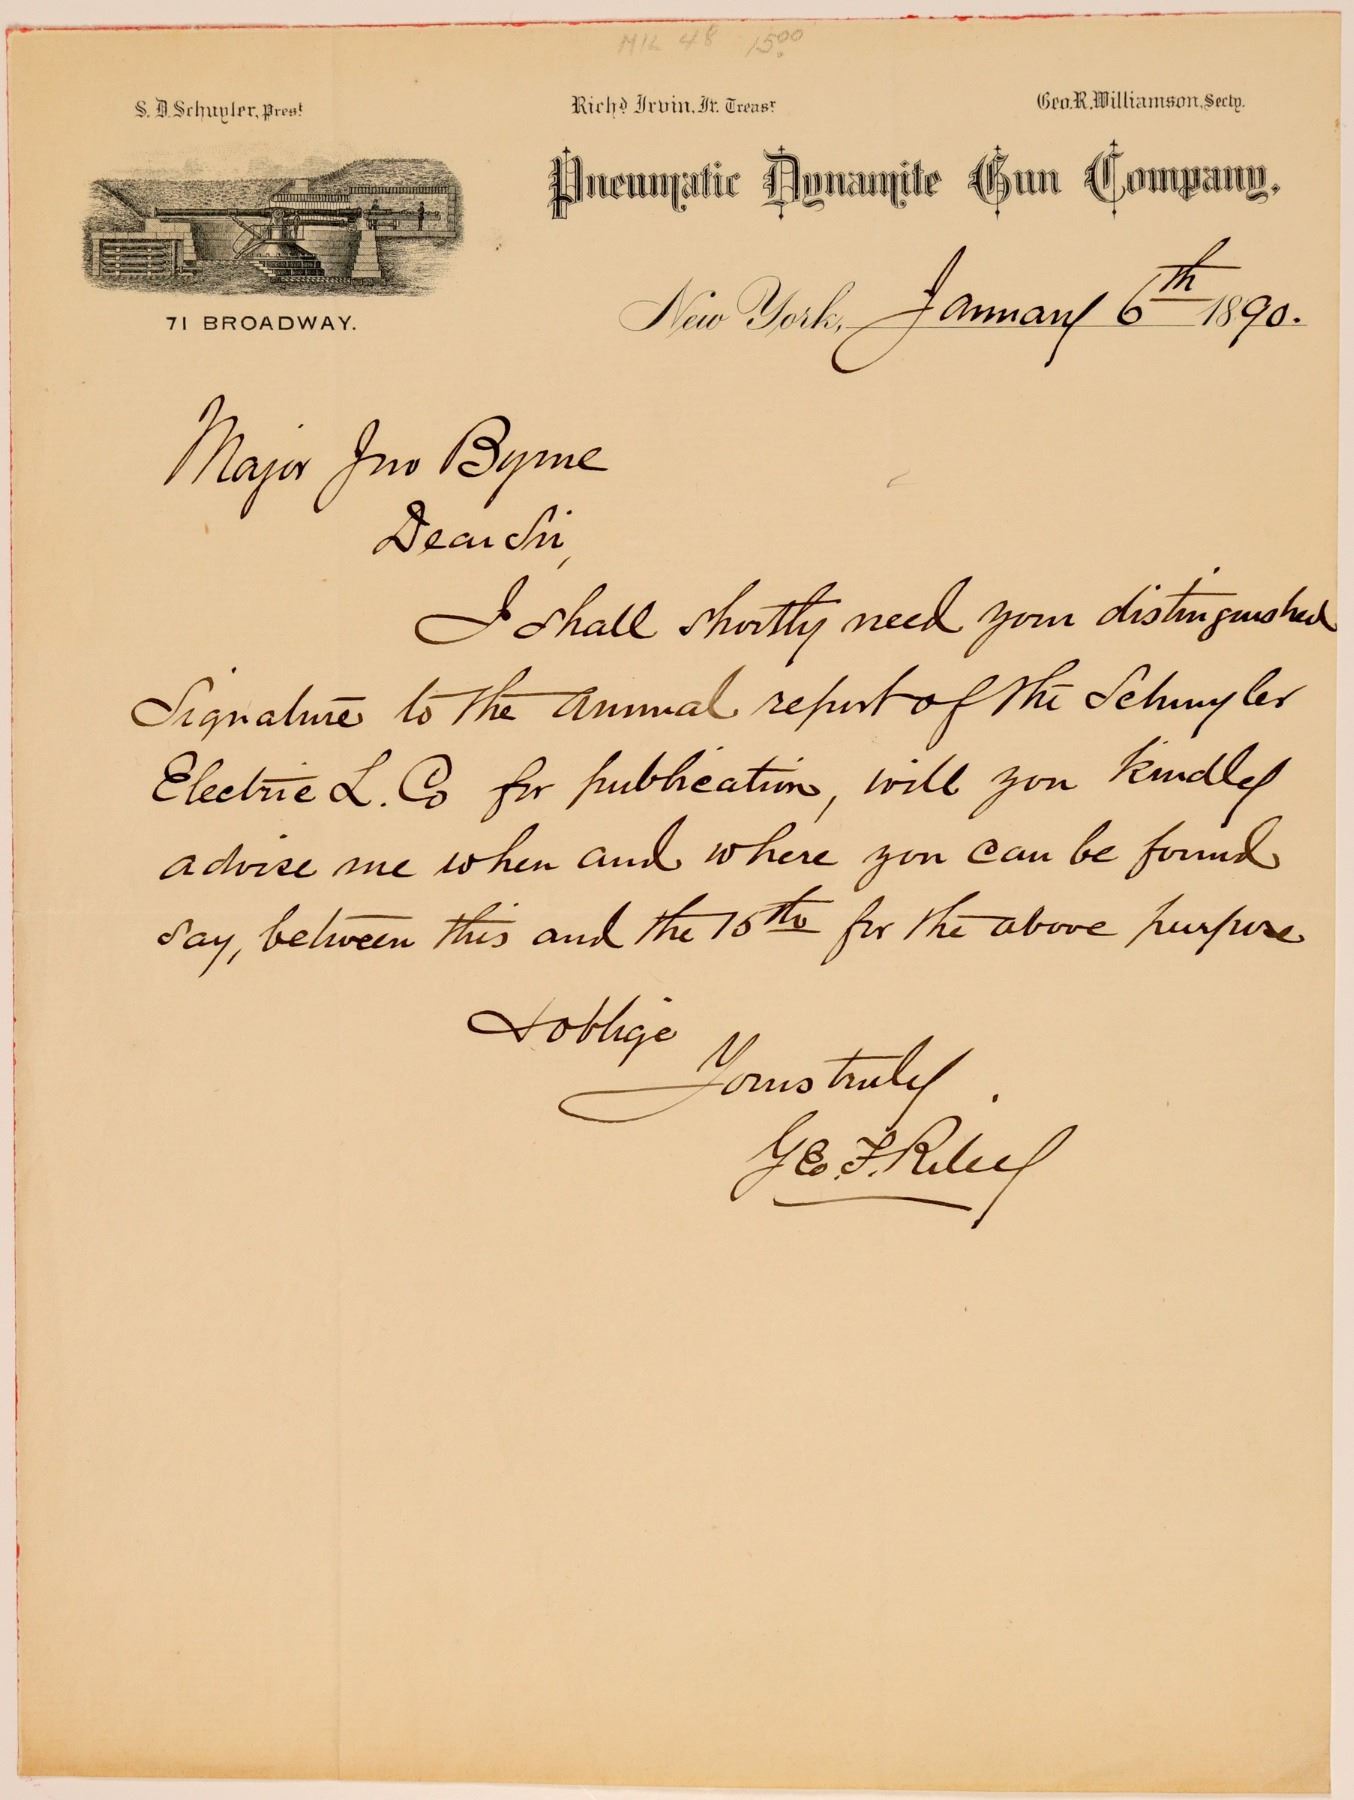 MIL 48 15.00
S. D. Schuyler, Prest.
Richd Irvin, Jr. Treasr
Geo. R. Williamson, Secty.
Pneumatic Dynamite Gun Company,
71 BROADWAY.
New York, January 6th 1890.
Major Jno Byrne
Dear Sir,
I shall shortly need your distinguished
Signature to the annual report of the Schuyler
Electric L. Co for publication, will you kindly
advise me when and where you can be found
say, between this and the 15th for the above purpose
& oblige
Yours truly
Geo. F. Riley